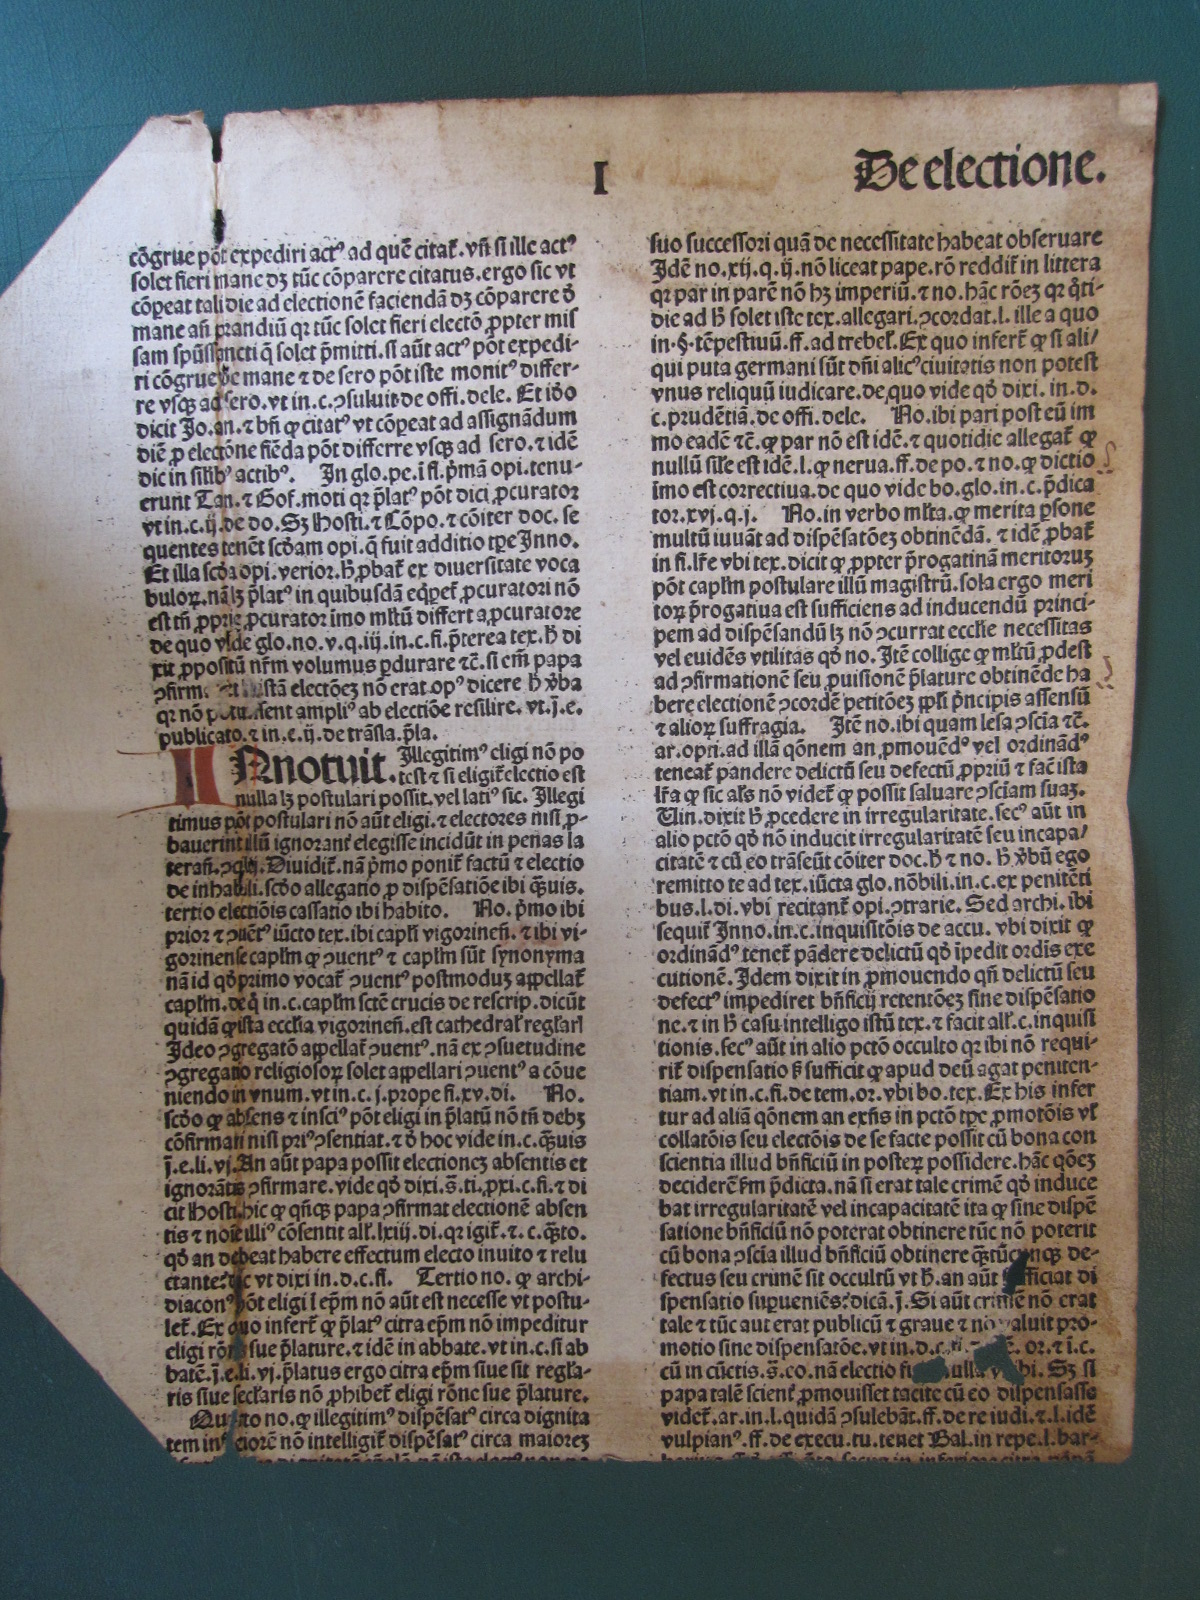 I
De electione.
cōgrue pōt expediri actꝰ ad quē citat̄. vñ si ille actꝰ
solet fieri mane dꝫ tūc cōparere citatus. ergo sic vt
cōpeat tali die ad electionē faciendā dꝫ cōparere d̄
mane añ prandiū qꝛ tūc solet fieri electō ꝓpter mis
sam spūssancti q̄ solet p̄mitti. si aūt actꝰ pōt expedi-
ri cōgrue de mane ⁊ de sero pōt iste monitꝰ differ-
re vsqꝫ ad sero. vt in. c. ꝯsuluit de offi. dele. Et idō
dicit Jo. an. ⁊ bñ ꝙ citatꝰ vt cōpeat ad assignādum
diē ꝓ electōne fiēda pōt differre vsqꝫ ad sero. ⁊ idē
dic in silibꝰ actibꝰ. In glo. pe. i. fi. p̄mā opi. tenu-
erunt Tan. ⁊ Gof. moti qꝛ p̄latꝰ pōt dici ꝓcurator
vt in. c. ij. de do. Sꝫ Hosti. ⁊ Cōpo. ⁊ cōiter doc. se
quentes tenēt scd̄am opi. q̄ fuit additio tpe Inno.
Et illa scd̄a opi. verior. h̄ ꝓbat̄ ex diuersitate voca
buloꝝ. nā lꝫ p̄latꝰ in quibusdā eq̄pet̄ ꝓcuratori nō
est tñ ꝓprie ꝓcurator imo ml̄tū differt a ꝓcuratore
de quo vide glo. no. v. q. iij. in. c. fi. p̄terea tex. h̄ di
xit ꝓpositū nr̄m volumus ꝑdurare ⁊c̄. si em̄ papa
ꝯfirm. istā electōeꝫ nō erat opꝰ dicere h̄ v̄ba
qꝛ nō potuissent ampliꝰ ab electiōe resilire. vt. j. e.
publicato. ⁊ in. c. ij. de trāsla. p̄la.
INnotuit. Illegitimꝰ eligi nō po
test ⁊ si eligit̄ electio est
nulla lꝫ postulari possit. vel latiꝰ sic. Illegi
timus pōt postulari nō aūt eligi. ⁊ electores nisi ꝓ-
bauerint illū ignorant̄ elegisse incidūt in penas la
terañ. ꝯcilij. Diuidit̄. nā p̄mo ponit̄ factū ⁊ electio
de inhabili. scd̄o allegatio ꝓ dispēsatiōe ibi q̄uis.
tertio electiōis cassatio ibi habito. No. p̄mo ibi
prior ⁊ ꝯuētꝰ iūcto tex. ibi capl̄i vigorineñ. ⁊ ibi vi-
gorinense capl̄m ꝙ ꝯuentꝰ ⁊ capl̄m sūt synonyma
nā id qd̄ primo vocat̄ ꝯuentꝰ postmoduꝫ appellat̄
capl̄m. de q̄ in. c. capl̄m sctē crucis de rescrip. dicūt
quidā ꝙ ista eccl̄ia vigorineñ. est cathedral̄ regl̄arl̄
Ideo ꝯgregatō appellat̄ ꝯuentꝰ. nā ex ꝯsuetudine
ꝯgregatio religiosoꝝ solet appellari ꝯuentꝰ a cōue
niendo in vnum. vt in. c. j. prope fi. xv. di. No.
scd̄o ꝙ absens ⁊ insciꝰ pōt eligi in p̄latū nō tñ debꝫ
cōfirmari nisi priꝰ ꝯsentiat. ⁊ d̄ hoc vide in. c. q̄uis
j. e. li. vj. An aūt papa possit electioneꝫ absentis et
ignorātis ꝯfirmare. vide qd̄ dixi. s̄. ti. ꝓxi. c. fi. ⁊ di
cit Hosti. hic ꝙ qñqꝫ papa ꝯfirmat electionē absen
tis ⁊ noīe illiꝰ cōsentit all̄. lxiij. di. qꝛ igit̄. ⁊. c. q̄sto.
qd̄ an debeat habere effectum electo inuito ⁊ relu
ctante: dic vt dixi in. d. c. fi. Tertio no. ꝙ archi-
diaconꝰ pōt eligi ī ep̄m nō aūt est necesse vt postu-
let̄. Ex quo infert̄ ꝙ p̄latꝰ citra ep̄m nō impeditur
eligi rōne sue p̄lature. ⁊ idē in abbate. vt in. c. si ab
batē. j. e. li. vj. p̄latus ergo citra ep̄m siue sit regl̄a-
ris siue secl̄aris nō ꝓhibet̄ eligi rōne sue p̄lature.
Quarto no. ꝙ illegitimꝰ dispēsatꝰ circa dignita
tem inferiorē nō intelligit̄ dispēsatꝰ circa maioreꝫ
suo successori quā de necessitate habeat obseruare
Idē no. xij. q. ij. nō liceat pape. rō reddit̄ in littera
qꝛ par in parē nō hꝫ imperiū. ⁊ no. hāc rōeꝫ qꝛ q̄ti-
die ad h̄ solet iste tex. allegari. ꝯcordat. l. ille a quo
in. §. tēpestiuū. ff. ad trebel̄. Ex quo infert̄ ꝙ si ali/
qui puta germani sūt dñi alicꝰ ciuitatis non potest
vnus reliquū iudicare. de quo vide qd̄ dixi. in. d.
c. prudētiā. de offi. dele. No. ibi pari post eū im
mo eadē ⁊c̄. ꝙ par nō est idē. ⁊ quotidie allegat̄ ꝙ
nullū sil̄e est idē. l. ꝙ nerua. ff. de po. ⁊ no. ꝙ dictio
īmo est correctiua. de quo vide bo. glo. in. c. p̄dica
tor. xvj. q. j. No. in verbo ml̄ta. ꝙ merita ꝑsone
multū iuuāt ad dispēsatōeꝫ obtinēdā. ⁊ idē ꝓbat̄
in fi. lr̄e vbi tex. dicit ꝙ ꝓpter p̄rogatinā meritoruꝫ
pōt capl̄m postulare illū magistrū. sola ergo meri
toꝝ p̄rogatiua est sufficiens ad inducendū princi-
pem ad dispēsandū lꝫ nō ꝯcurrat eccl̄ie necessitas
vel euidēs vtilitas qd̄ no. Itē collige ꝙ ml̄tū ꝓdest
ad ꝯfirmationē seu ꝓuisionē p̄lature obtinēde ha
bere electionē ꝯcordē petitōeꝫ ppl̄i p̄ncipis assensū
⁊ alioꝝ suffragia. Itē no. ibi quam lesa ꝯscia ⁊c̄.
ar. opti. ad illā qōnem an ꝓmouēdꝰ vel ordinādꝰ
teneat̄ pandere delictū seu defectū ꝓpriū ⁊ fac̄ ista
lr̄a ꝙ sic al̄s nō videt̄ ꝙ possit saluare ꝯsciam suaꝫ.
Vin. dixit h̄ ꝓcedere in irregularitate. secꝰ aūt in
alio pctō qd̄ nō inducit irregularitatē seu incapa/
citatē ⁊ cū eo trāseūt cōiter doc. h̄ ⁊ no. h̄ v̄bū ego
remitto te ad tex. iūcta glo. nōbili. in. c. ex penitēti
bus. l. di. vbi recitant̄ opi. ꝯtrarie. Sed archi. ibi
sequit̄ Inno. in. c. inquisitōis de accu. vbi dixit ꝙ
ordinādꝰ tenet̄ pādere delictū qd̄ īpedit ordīs exe
cutionē. Idem dixit in ꝓmouendo qñ delictū seu
defectꝰ impediret bñficij retentōeꝫ sine dispēsatio
ne. ⁊ in h̄ casu intelligo istū tex. ⁊ facit all̄. c. inquisi
tionis. secꝰ aūt in alio pctō occulto qꝛ ibi nō requi-
rit̄ dispensatio s̄ sufficit ꝙ apud deū agat peniten-
tiam. vt in. c. fi. de tem. or. vbi bo. tex. Ex his infer
tur ad aliā qōnem an exñs in pctō tpe ꝓmotōis vl̄
collatōis seu electōis de se facte possit cū bona con
scientia illud bñficiū in posteꝝ possidere. hāc qōeꝫ
deciderē s̄m p̄dicta. nā si erat tale crimē qd̄ induce
bat irregularitatē vel incapacitatē ita ꝙ sine dispē
satione bñficiū nō poterat obtinere tūc nō poterit
cū bona ꝯscia illud bñficiū obtinere q̄stūcunqꝫ de-
fectus seu crimē sit occultū vt h̄. an aūt sufficiat di
spensatio suꝑueniēs: dicā. j. Si aūt crimē nō erat
tale ⁊ tūc aut erat publicū ⁊ graue ⁊ nō valuit pro-
motio sine dispensatōe. vt in. d. c. or. ⁊ ī. c.
cū in cūctis. s̄. eo. nā electio fu nulla ibi. Sꝫ si
papa talē scient̄ ꝓmouisset tacite cū eo dispensasse
videt̄. ar. in. l. quidā ꝯsulebāt. ff. de re iudi. ⁊. l. idē
vulpianꝰ. ff. de execu. tu. tenet Bal. in repe. l. bar-